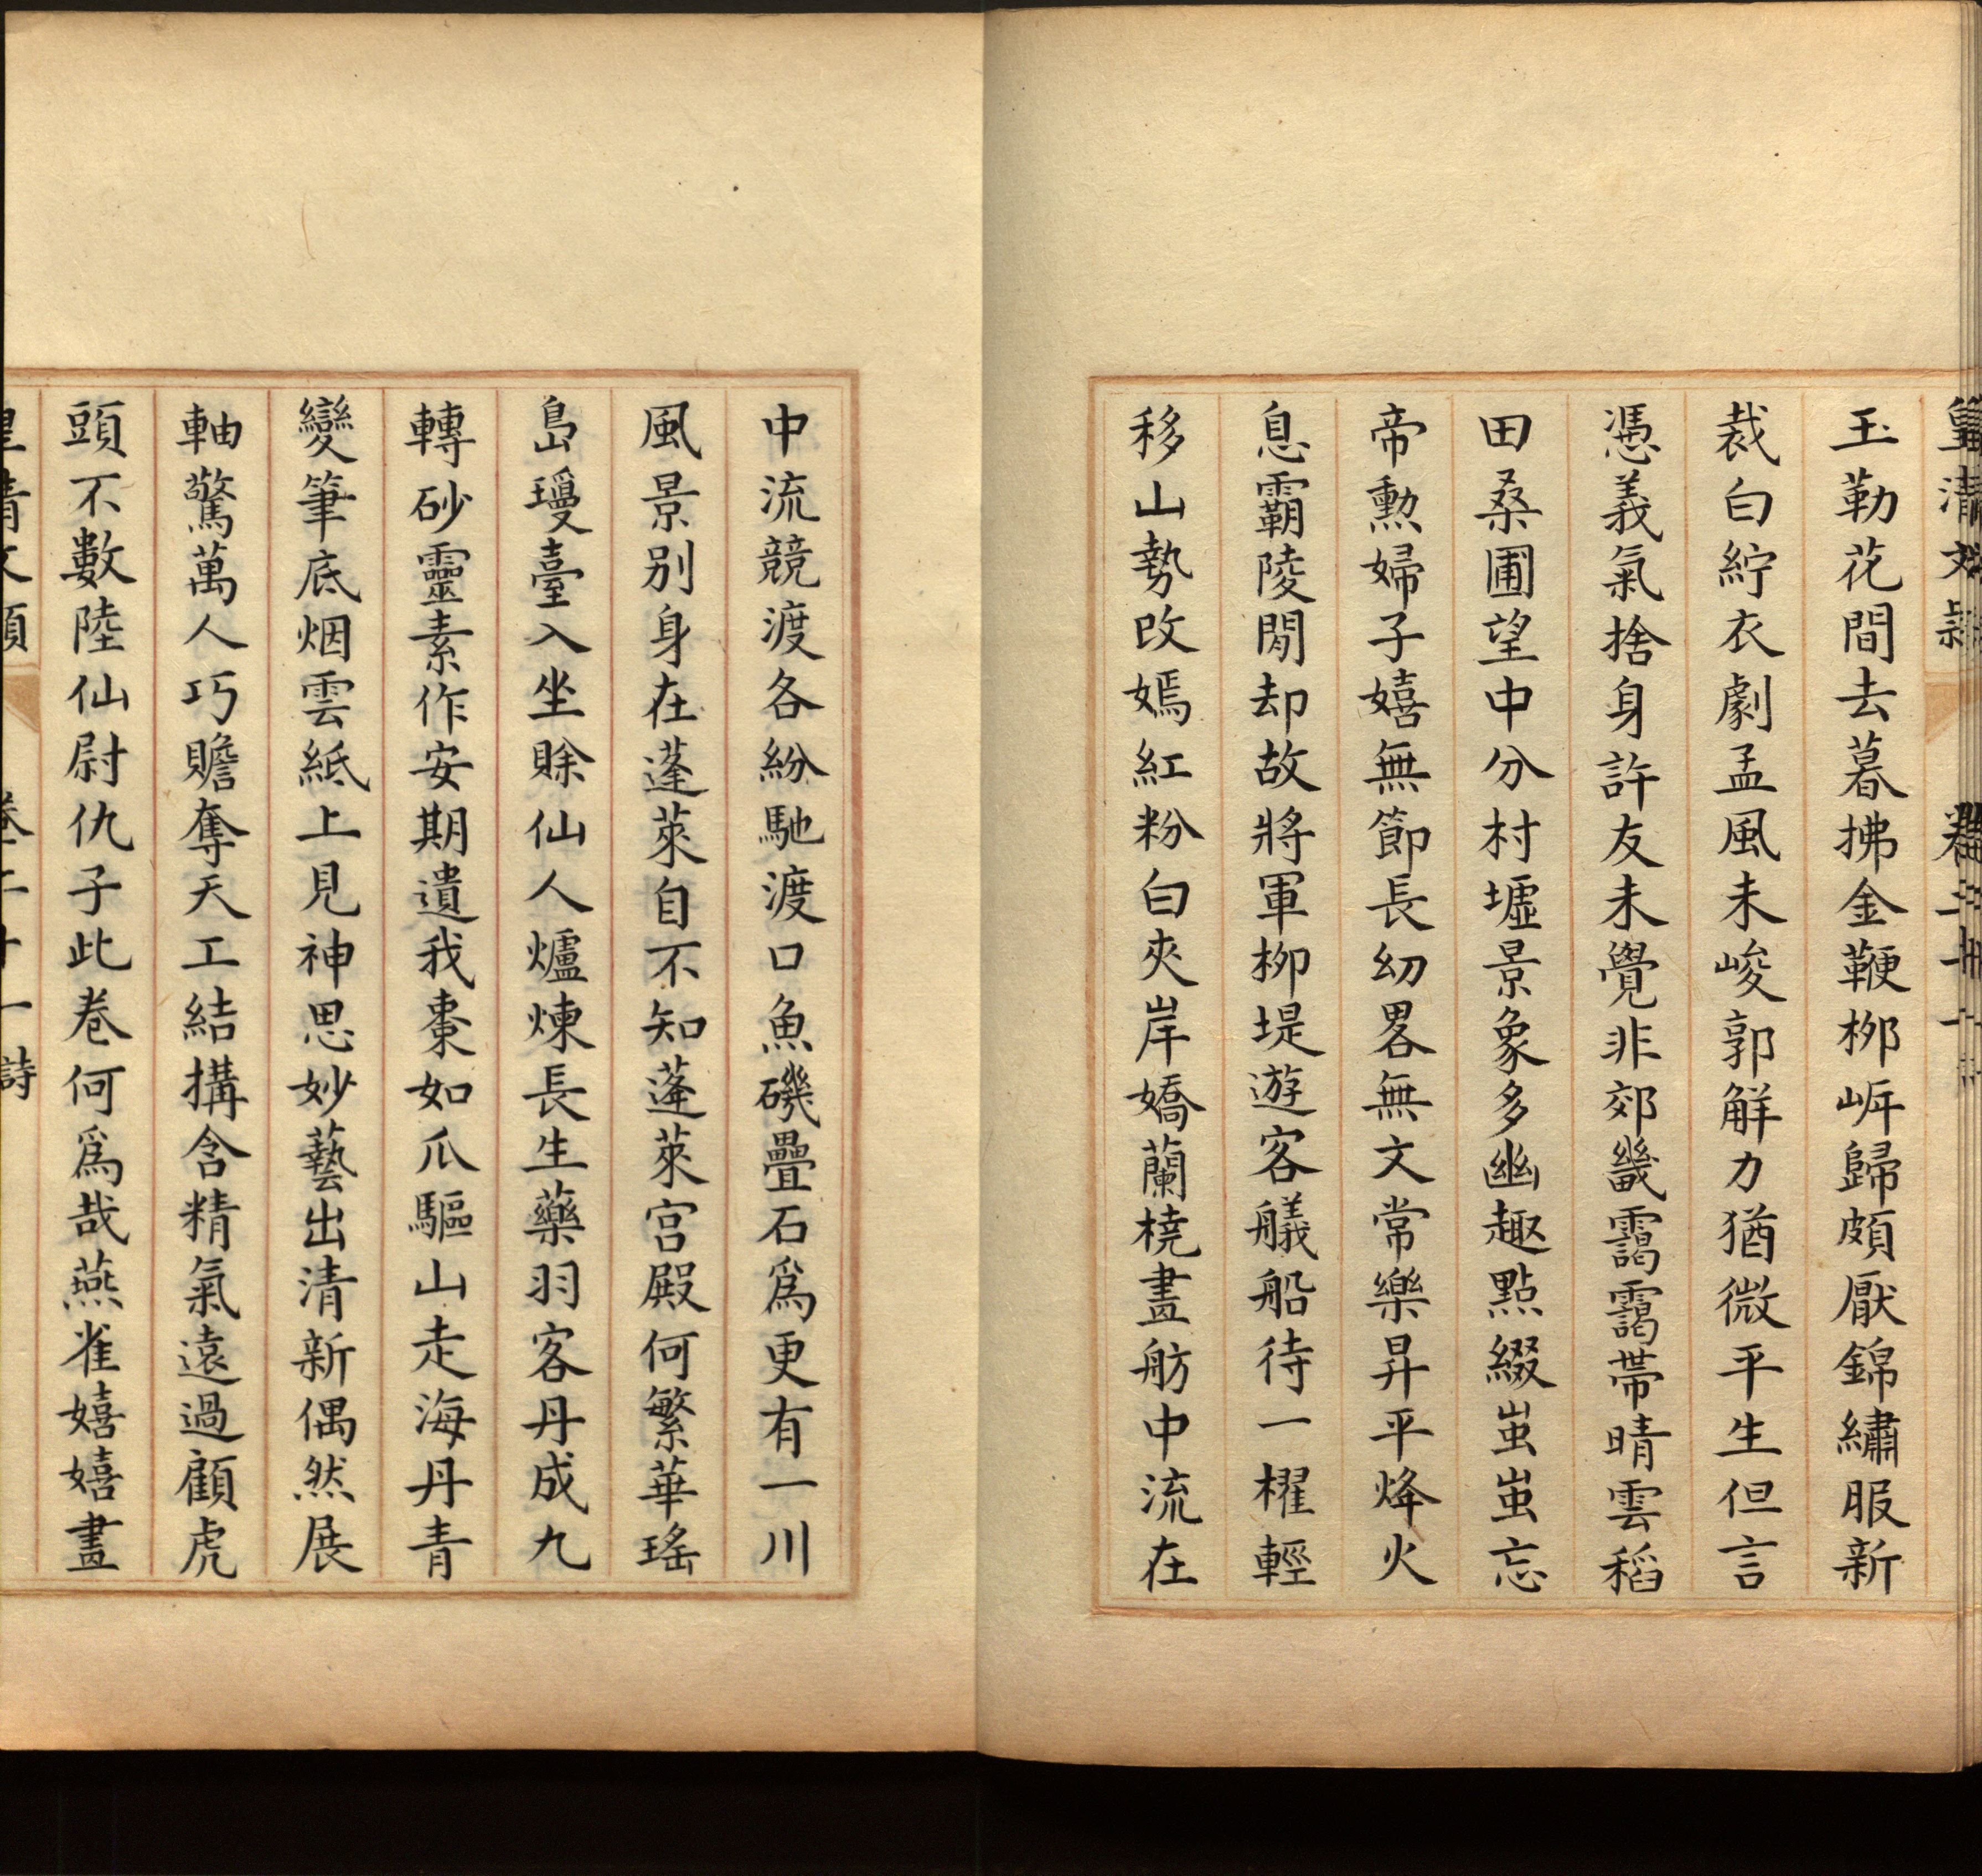 皇清文穎 卷二十一 詩
玉勒花間去暮拂金鞭栁㟁歸頗厭錦繡服新
裁白紵衣劇孟風未峻郭解力猶微平生但言
憑義氣捨身許友未覺非郊畿靄靄帶晴雲稻
田桑圃望中分村墟景象多幽趣點綴蚩蚩忘
帝勲婦子嬉無節長幼畧無文常樂昇平烽火
息霸陵閒却故將軍柳堤遊客艤船待一櫂輕
移山勢改嫣紅粉白夾岸嬌蘭橈畫舫中流在
中流競渡各紛馳渡口魚磯疊石爲更有一川
風景别身在蓬萊自不知蓬萊宮殿何繁華瑤
島璚臺入坐賒仙人爐煉長生藥羽客丹成九
轉砂靈素作安期遺我棗如瓜驅山走海丹青
變筆底烟雲紙上見神思妙藝出清新偶然展
軸驚萬人巧贍奪天工結搆含精氣遠過顧虎
頭不數陸仙尉仇子此卷何爲哉燕雀嬉嬉畫
皇清文穎 卷二十一 詩